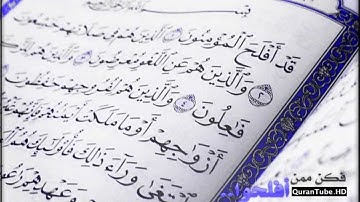 قَدْ أَفْلَحَ الْمُؤْمِنُونَ ١ الَّذِينَ هُمْ فِي صَلَاتِهِمْ
٢ وَالَّذِينَ هُمْ عَنِ اللَّغْوِ مُعْرِضُونَ ٣ وَالَّذِينَ هُمْ
فَاعِلُونَ ٤ وَالَّذِينَ هُمْ لِفُرُوجِهِمْ حَافِظُونَ
أَزْوَاجِهِمْ أَوْ مَا مَلَكَتْ أَيْمَانُهُمْ فَإِنَّهُمْ
ابْتَغَىٰ وَرَاءَ ذَٰلِكَ فَأُولَٰئِكَ هُمُ
وَعَهْدِهِمْ رَاعُونَ
فكن ممن
أفلحوا..
QuranTube.HD